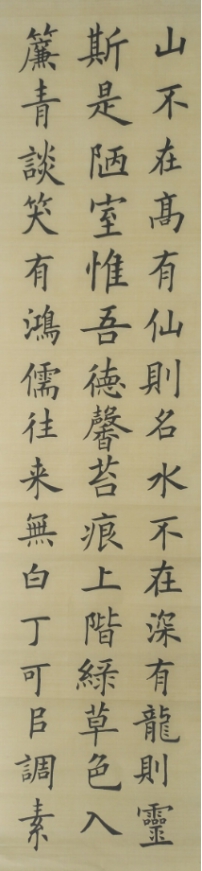 山不在高有仙則名水不在深有龍則靈
斯是陋室惟吾德馨苔痕上階綠草色入
簾青談笑有鴻儒往来無白丁可㠯調素